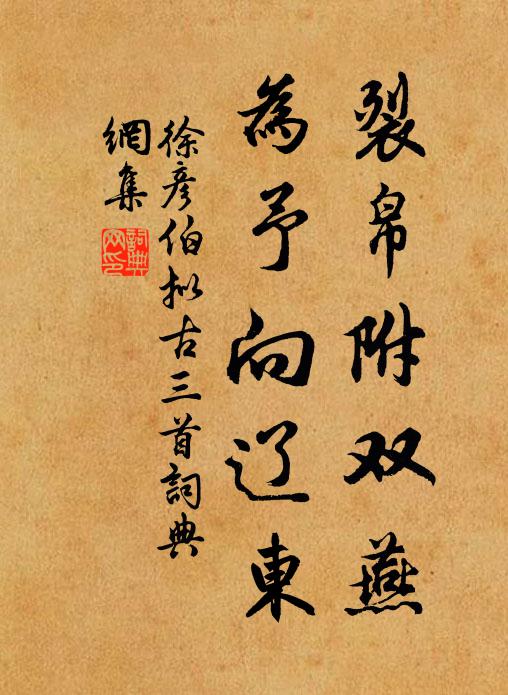 裂帛附双燕
為予向辽東
徐彦伯拟古三首詞典
網集
詞典
网印